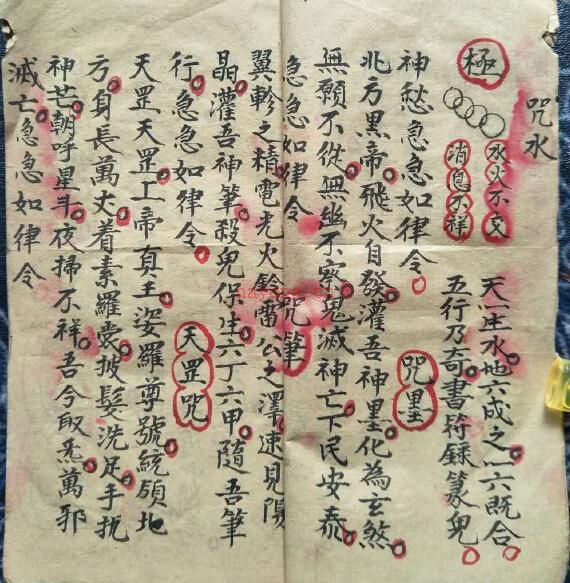 咒水
水火不交
消息不祥
極
天一生水地六成之一六既合
五行乃奇書符籙篆鬼
神愁急急如律令
咒墨
北方黑帝飛火自發灌吾神墨化為玄煞
無願不從無幽不察鬼滅神亡下民安泰
急急如律令
咒筆
翼軫之精電光火鈴雷公之澤速見陽
晶灌吾神筆殺鬼保生六丁六甲隨吾筆
行急急如律令
天罡咒
天罡天罡上帝真王姿羅尊號統領北
方身長萬丈着素羅裳披髮洗足手扼
神芒朝呼星斗夜掃不祥吾今取炁萬邪
滅亡急急如律令